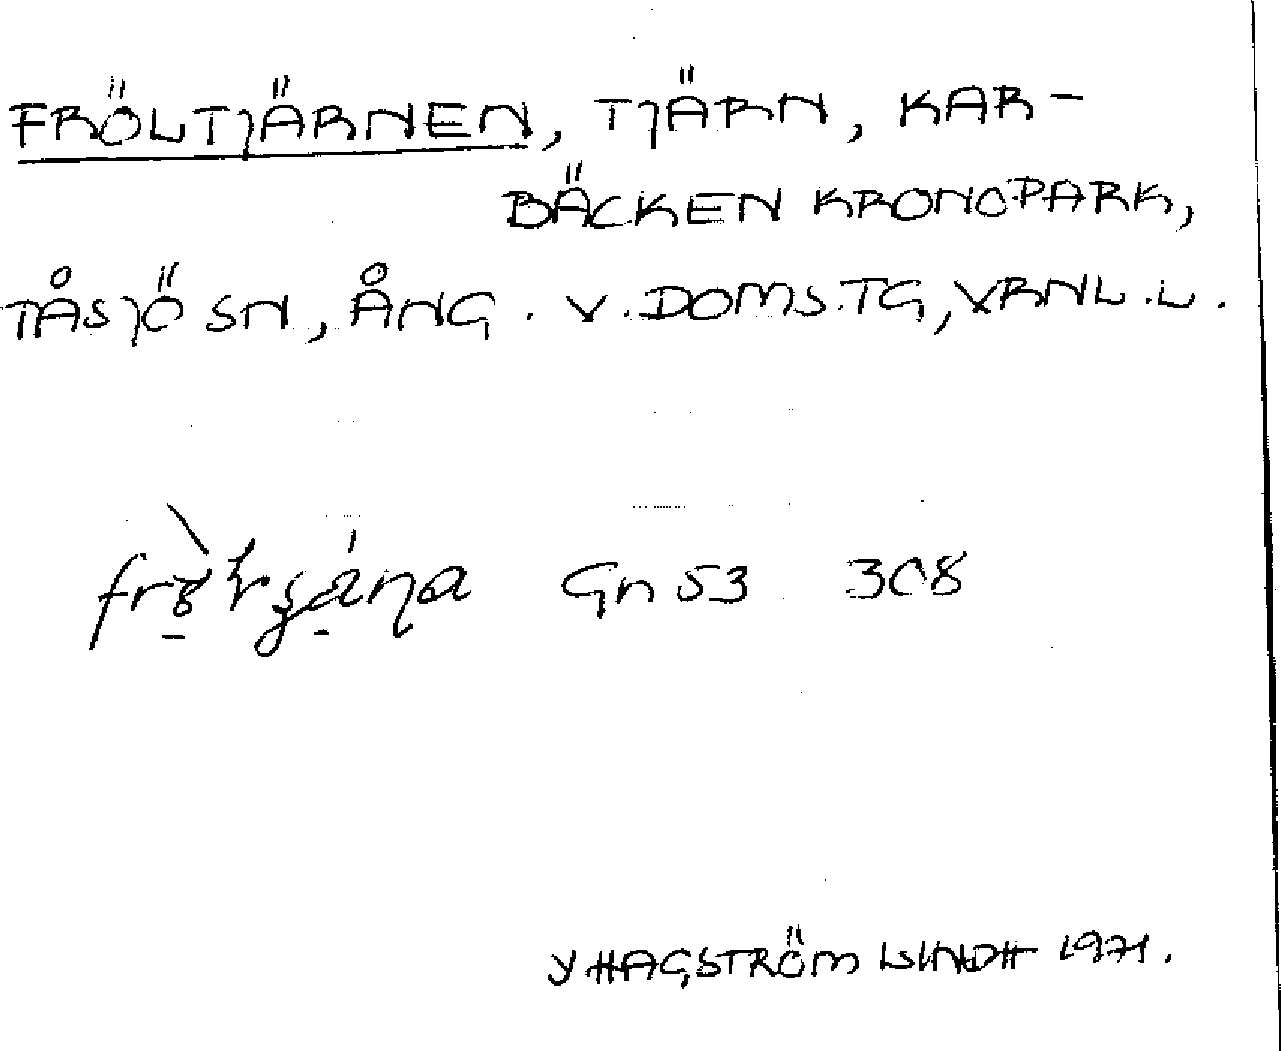 FRÖLTJÄRNEN, TJÄRN, KAR-
BÄCKEN KRONOPARK,
TÅSJÖ SN, ÅNG. V. DOMS.TG, VRNL.L.
Gn 53 308
Y HAGSTRÖM LINDH 1971.